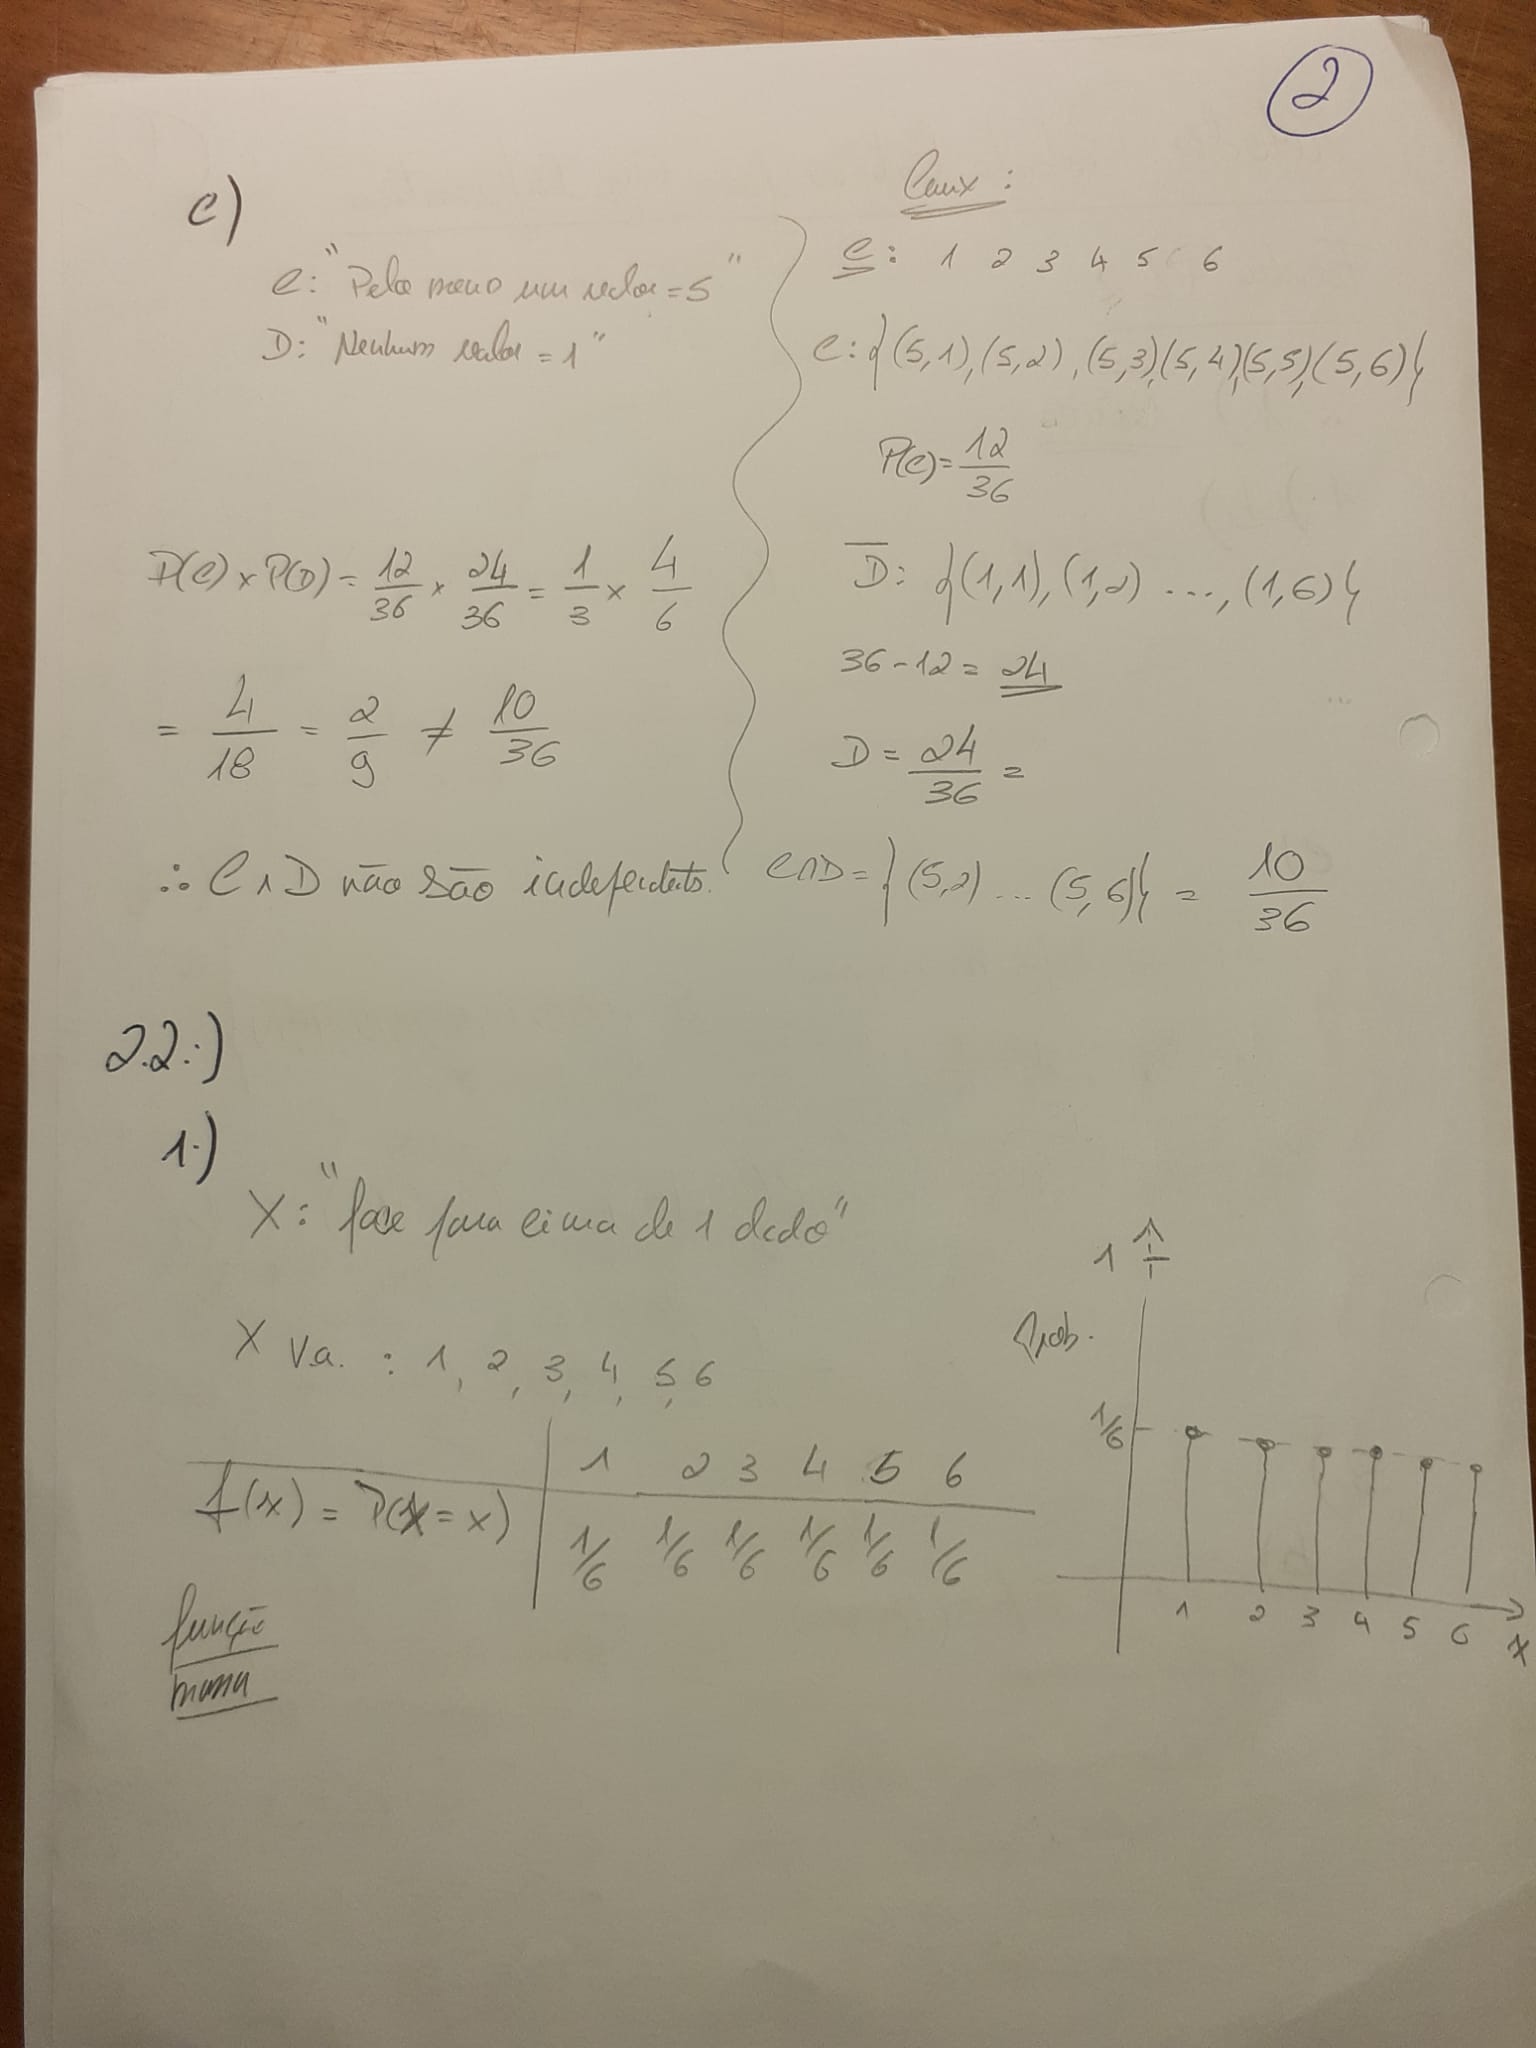 2
c)
C: "Pelo meno um valor = 5"
D: "Nenhum valor = 1"
P(C) × P(D) = 12/36 × 24/36 = 1/3 × 4/6
= 4/18 = 2/9 ≠ 10/36
∴ C ∧ D não são independets.
Caux:
C: 1 2 3 4 5 6
C: {(5,1), (5,2), (5,3), (5,4), (5,5), (5,6)}
P(C) = 12/36
D̅: {(1,1), (1,2) ..., (1,6)}
36 - 12 = 24
D = 24/36 =
C∩D = {(5,2) ... (5,6)} = 10/36
2.2.)
1.)
X: "face para cima de 1 dado"
X v.a. : 1, 2, 3, 4, 5, 6
1 2 3 4 5 6
f(x) = P(X = x) 1/6 1/6 1/6 1/6 1/6 1/6
função
massa
1
Prob.
1/6
1 2 3 4 5 6
X